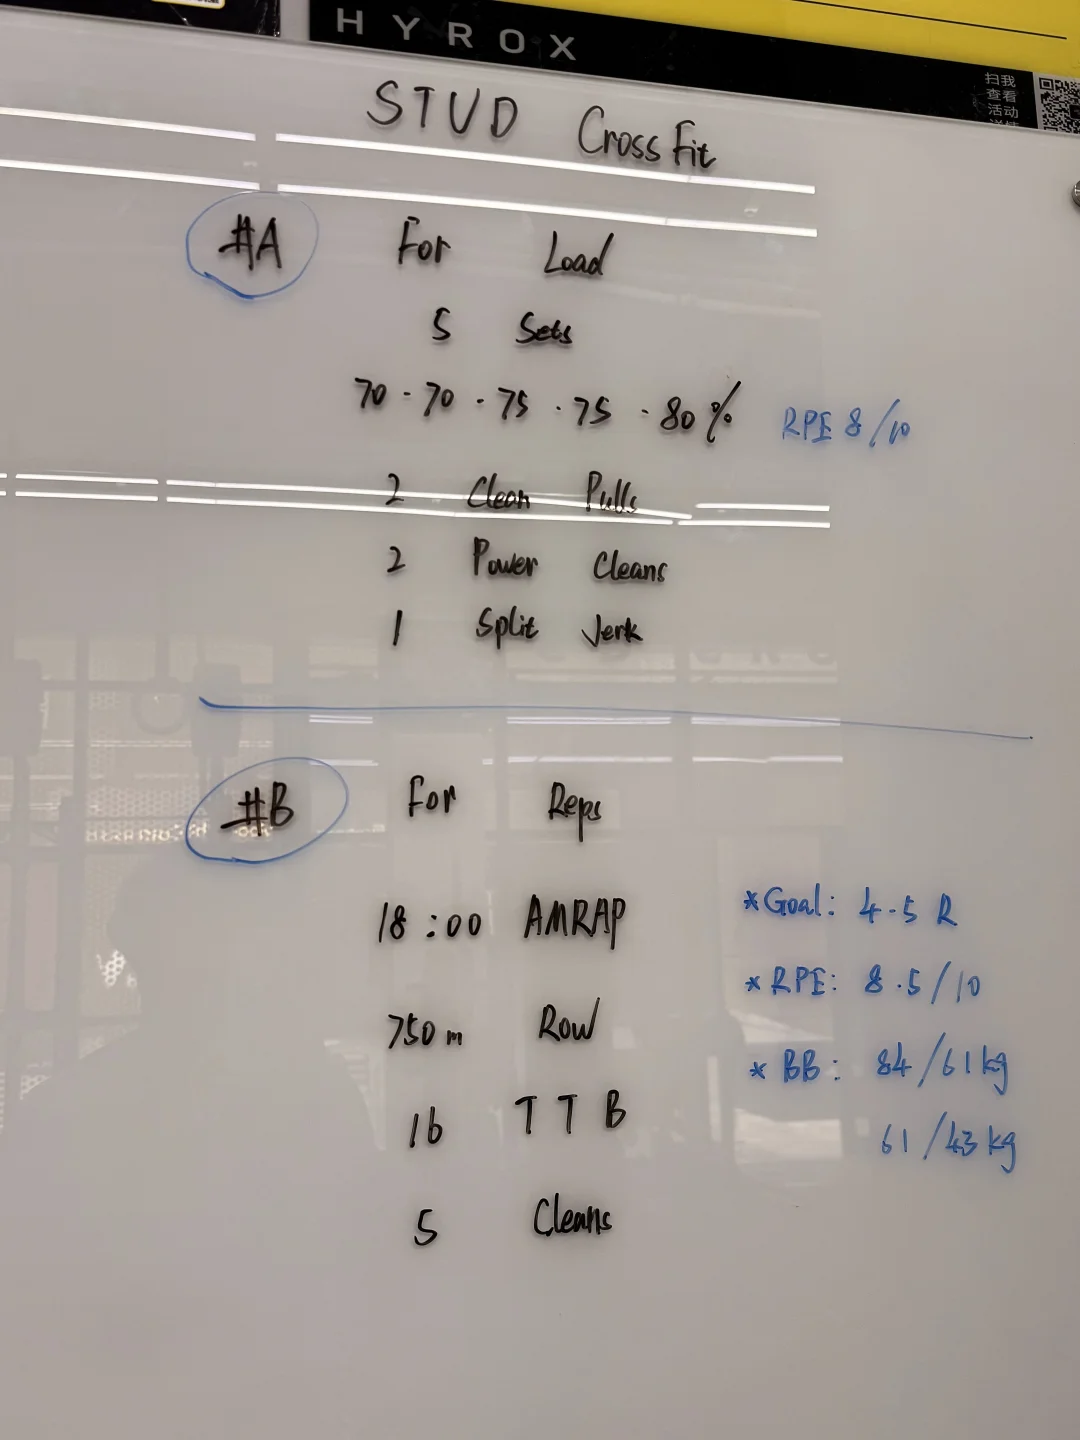 HYROX
扫我
查看
活动
STUD CrossFit
#A For Load
5 Sets
70 - 70 - 75 - 75 - 80% RPE 8/10
2 Clean Pulls
2 Power Cleans
1 Split Jerk
#B For Reps
18:00 AMRAP
*Goal: 4-5 R
750m Row
*RPE: 8.5/10
16 TTB
*BB: 84/61kg
61/43kg
5 Cleans